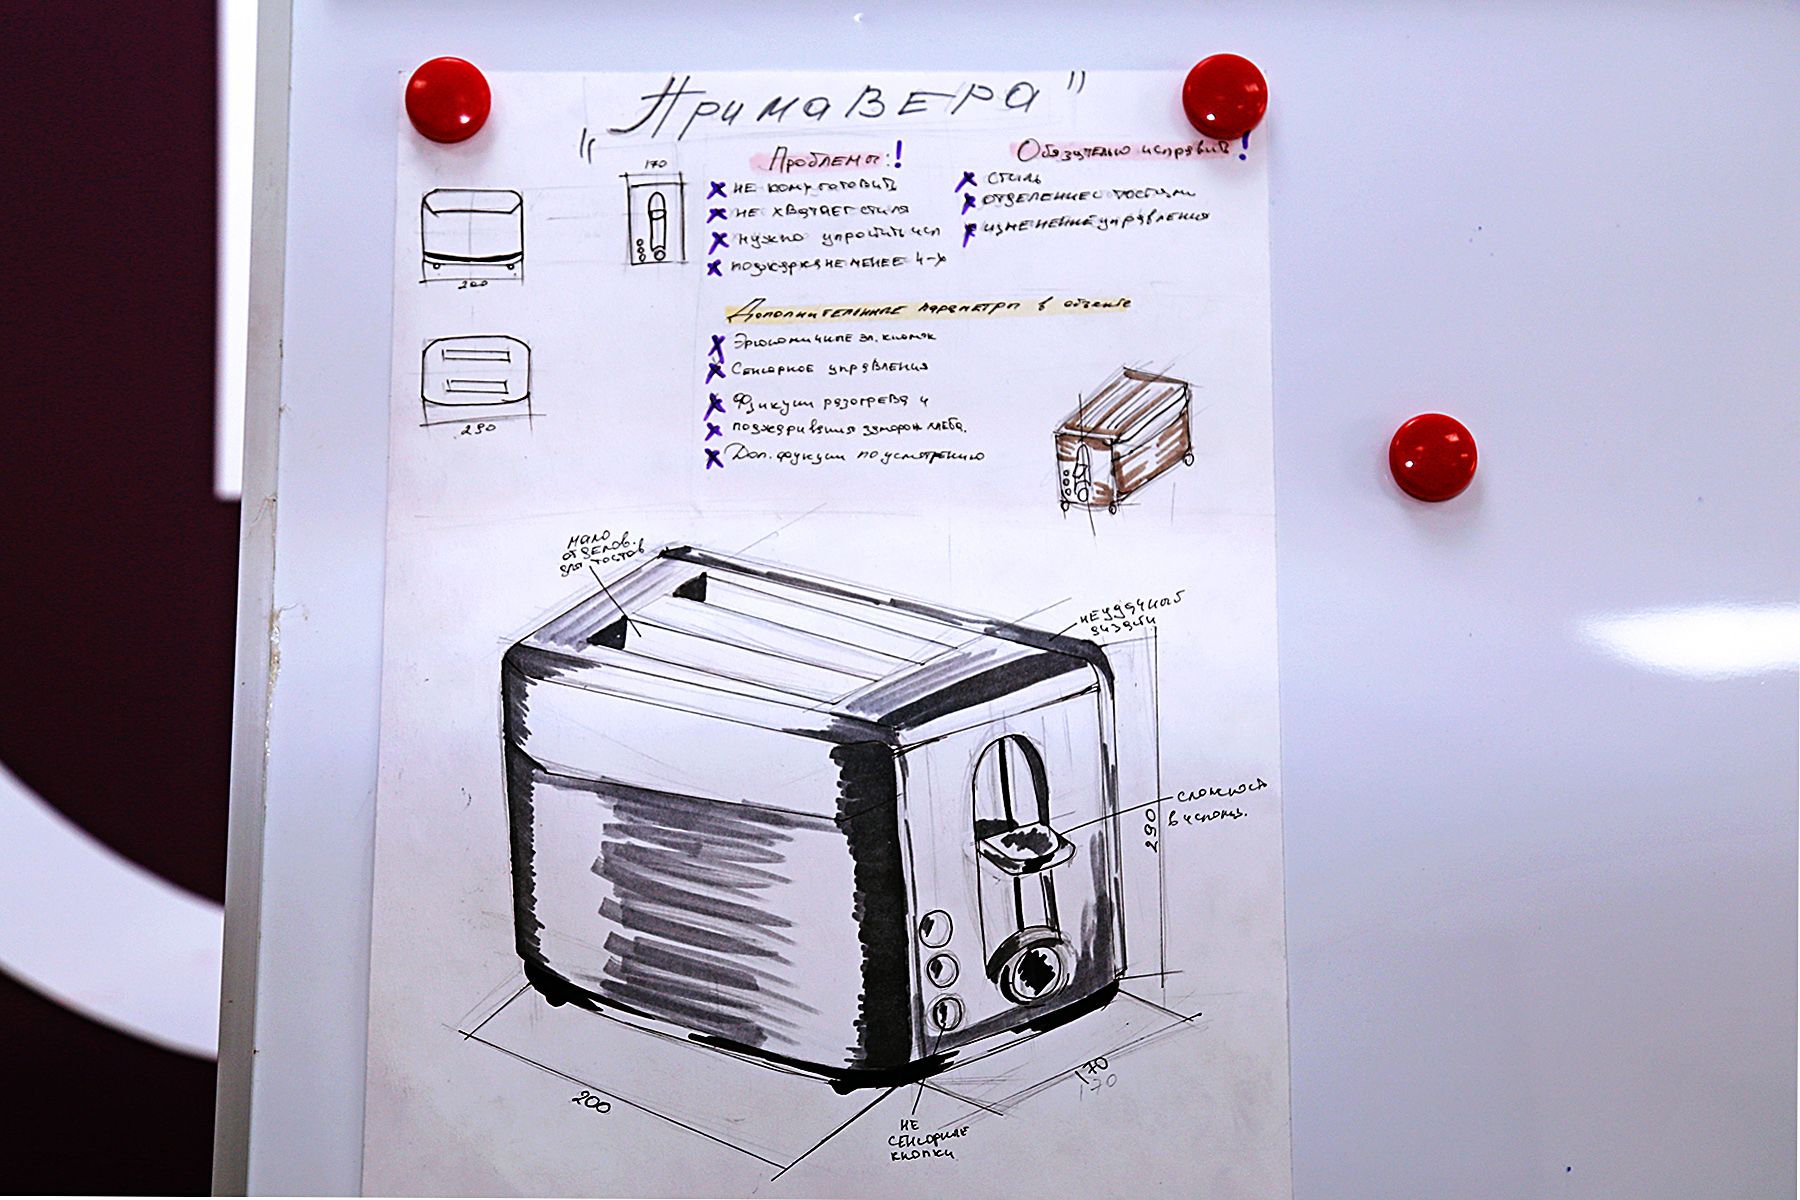 "Примавера"
Проблемы:!
Обязательно исправить!
170
х не кому готовить
х не хватает стиля
х нужно упростить исп
х поджарка не менее 4-х
х стиль
х отделение с тостами
х изменение управления
200
Дополнительные параметры в объекте
х Эргономичные эл. кнопок
х Сенсорное управления
х Функции разогрева и
х поджаривания заморож хлеба.
х Доп. функции по усмотрению
290
мало
отделов.
для тостов
неудачный
дизайн
сложность
в использ.
290
200
170
170
не
сенсорные
кнопки